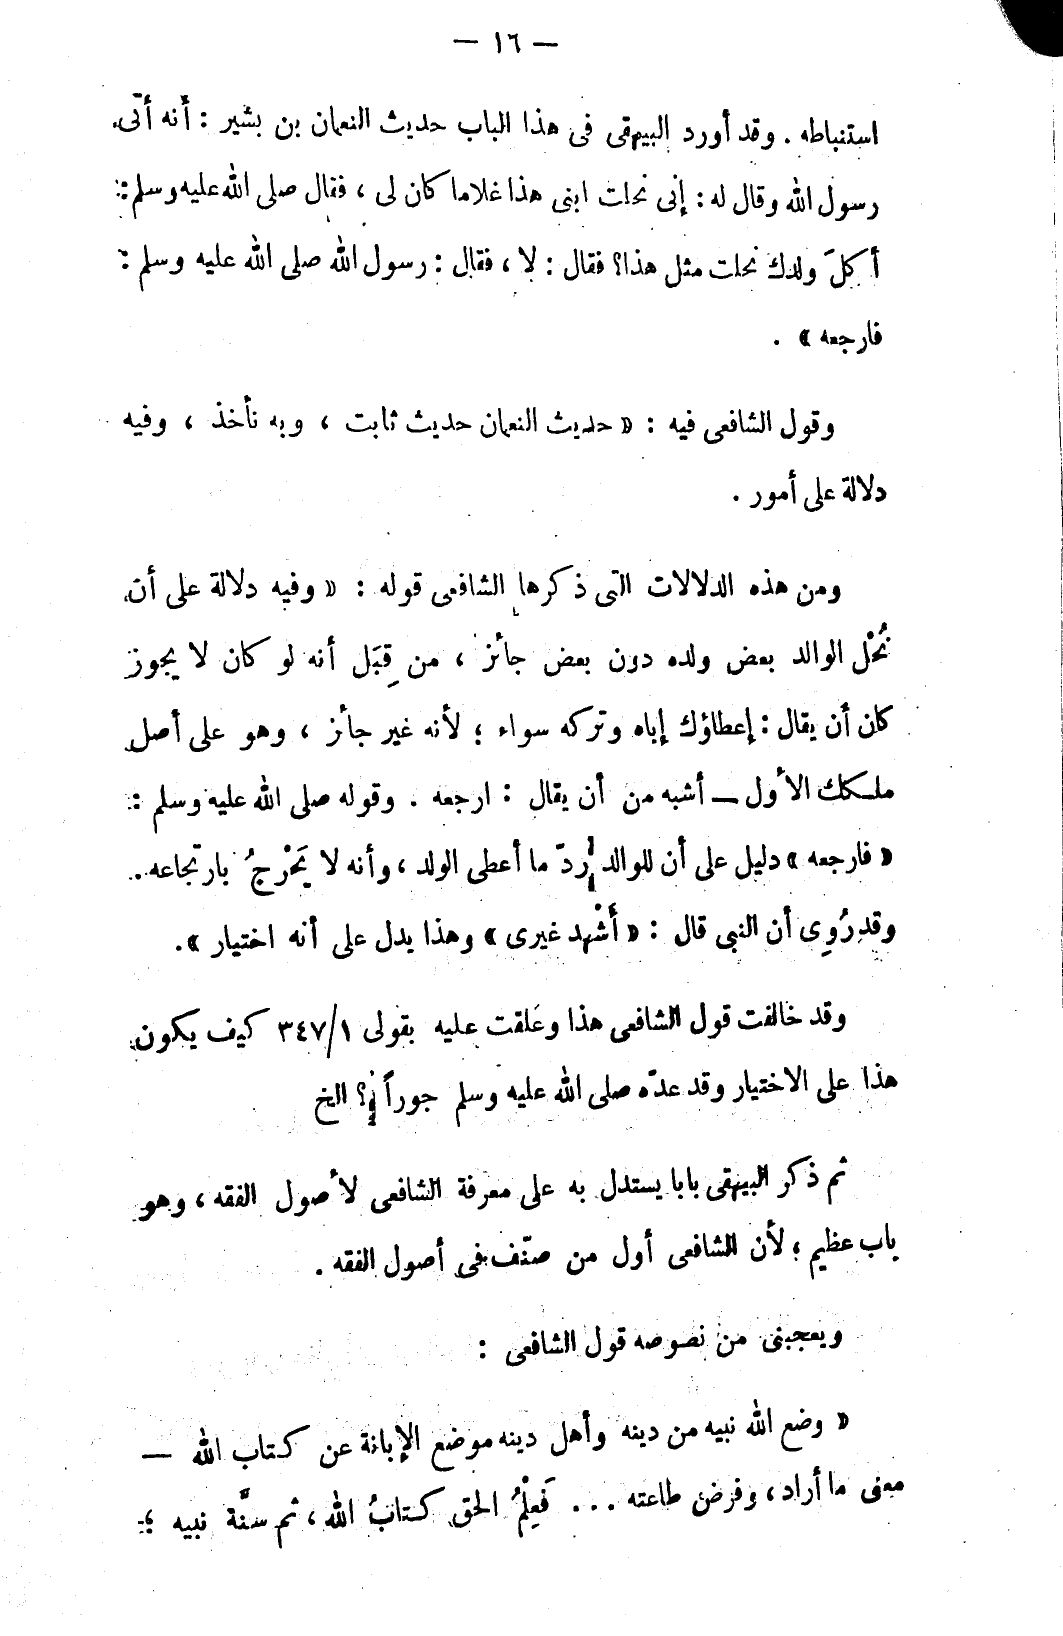 — ١٦ —
استنباطه . وقد أورد البيهقى فى هذا الباب حديث النعمان بن بشير : أنه أتى
رسول الله وقال له : إنى نحلت ابنى هذا غلاما كان لى ، فقال صلى الله عليه وسلم :
أكلَّ ولدك نحلت مثل هذا؟ فقال : لا ، فقال : رسول الله صلى الله عليه وسلم :
فارجعه » .
وقول الشافعى فيه : « حديث النعمان حديث ثابت ، وبه نأخذ ، وفيه
دلالة على أمور .
ومن هذه الدلالات التى ذكرها الشافعى قوله : « وفيه دلالة على أن
نُحْل الوالد بعض ولده دون بعض جائز ، من قِبَل أنه لو كان لا يجوز
كان أن يقال : إعطاؤك إياه وتركه سواء ؛ لأنه غير جائز ، وهو على أصل
ملكك الأول — أشبه من أن يقال : ارجعه . وقوله صلى الله عليه وسلم :
« فارجعه » دليل على أن للوالد ردّ ما أعطى الولد ، وأنه لا يَحْرجُ بارتجاعه .
وقد رُوِى أن النبى قال : « أَشْهِد غيرى » وهذا يدل على أنه اختيار » .
وقد خالفت قول الشافعى هذا وعَلقت عليه بقولى ٣٤٧/١ كيف يكون
هذا على الاختيار وقد عدّه صلى الله عليه وسلم جوراً ؟ الخ
ثم ذكر البيهقى بابا يستدل به على معرفة الشافعى لأصول الفقه ، وهو
باب عظيم ؛ لأن الشافعى أول من صنّف فى أصول الفقه .
ويعجبنى من نصوصه قول الشافعى :
« وضع الله نبيه من دينه وأهل دينه موضع الإبانة عن كتاب الله —
معنى ما أراد ، وفرض طاعته ... فَعِلْمُ الحق كتابُ الله ، ثم سنَّة نبيه ؛